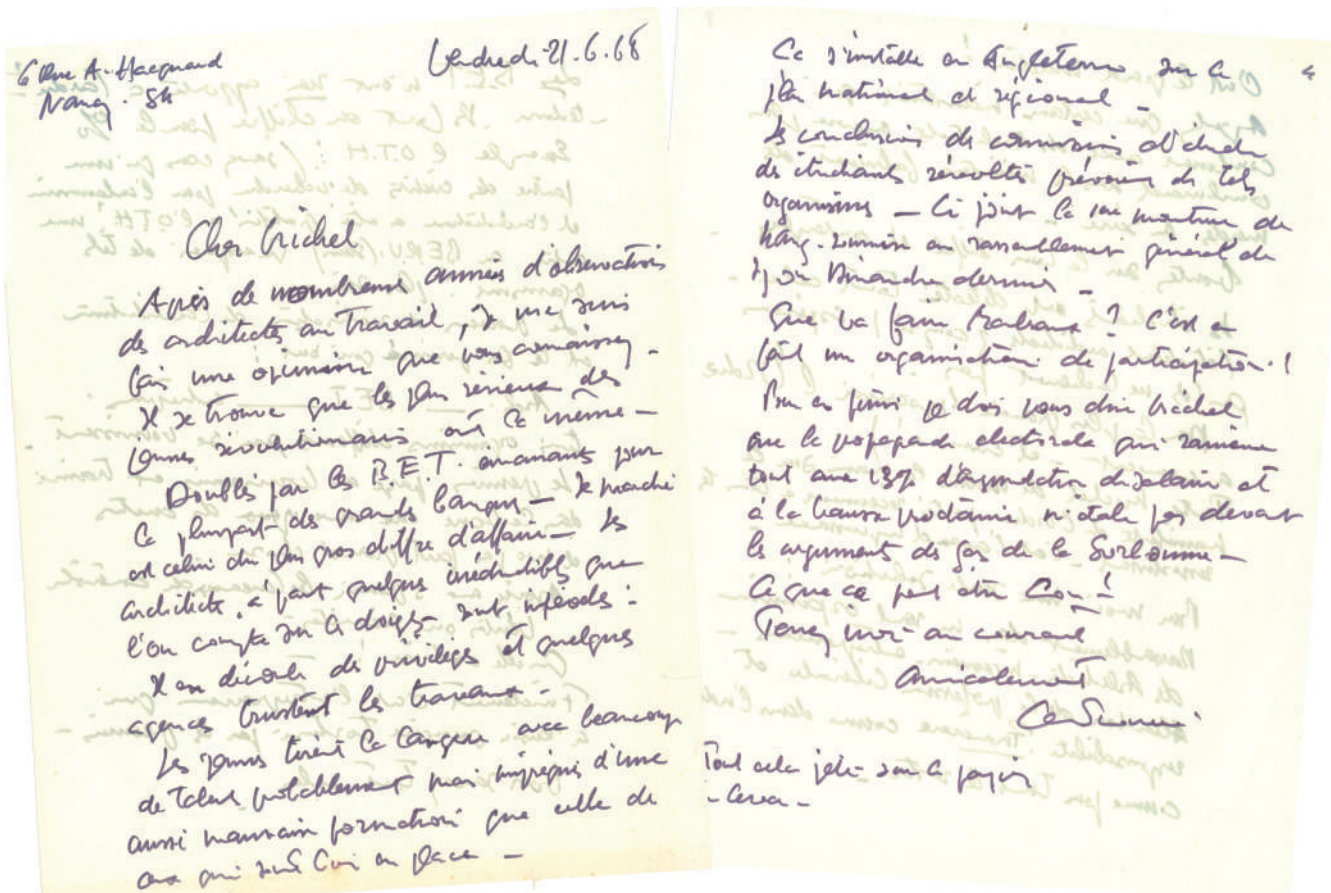 6 Rue A. Hacquard
Nancy. 54
Vendredi 21.6.68
Cher Michel
Après de nombreuses années d'observations
des architectes au travail, je me suis
fais une opinion que vous connaissez.
Il se trouve que les plus sérieux des
jeunes révolutionnaires ont la même -
Doublés par les B.E.T. émanants pour
la plupart des grands banques - le marché
est celui du plus gros chiffre d'affaire - les
architectes, à part quelques irréductibles que
l'on compte sur les doigts - sont inféodés :
Il en découle des privilèges et quelques
agences trustent les travaux -
Les jeunes tirent la langue avec beaucoup
de talent probablement mais imprégnés d'une
aussi mauvaise formation que celle de
ceux qui sont en place -
4
Ca s'installe en Angleterre sur le
plan national et régional -
les conclusions des commissions d'études
des étudiants révoltés prévoient de tels
organismes - Ci joint la 1ère mouture de
Nancy. remise au rassemblement général de
Lyon Dimanche dernier -
Que va faire Malraux ? C'est en
fait une organisation de participation !
Pour en finir je dois vous dire Michel
que la propagande électorale qui ramène
tout aux 13% d'augmentation de salaire et
à la hausse prochaine n'étale pas devant
les arguments des gars de la Sorbonne -
Ce que ça peut être Con - !
Tenez moi au courant
Amicalement
Tout cela jeté sur le papier